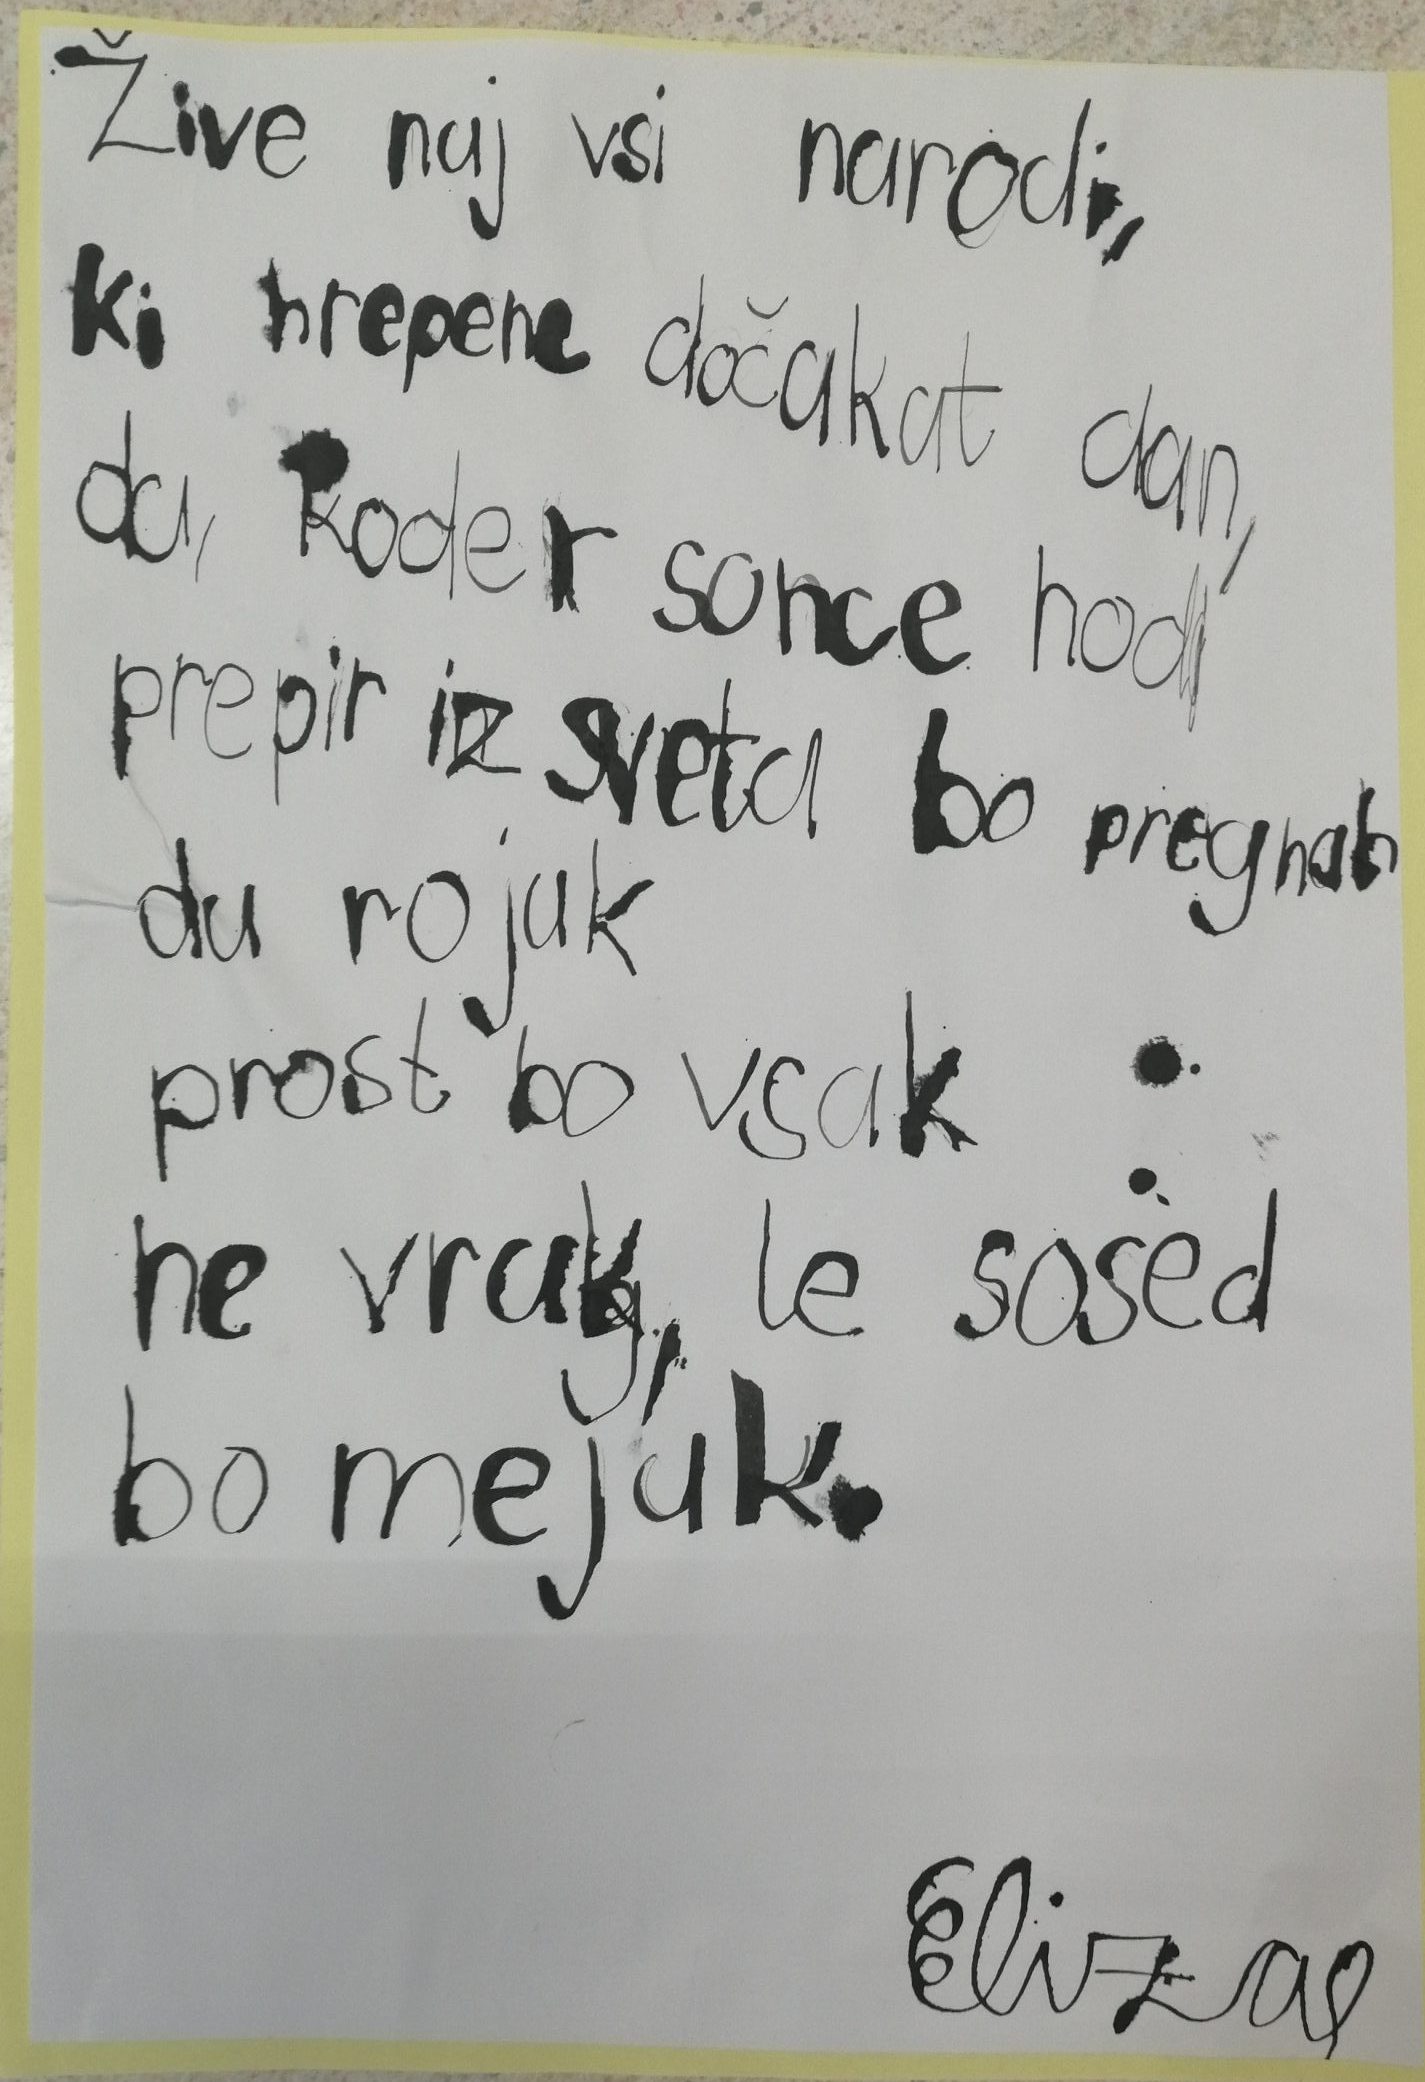 Žive naj vsi narodi,
ki hrepene dočakat dan,
da, koder sonce hodi
prepir iz sveta bo pregnan
da rojak
prost bo vsak
ne vrag, le sosed
bo mejak.
Eliza